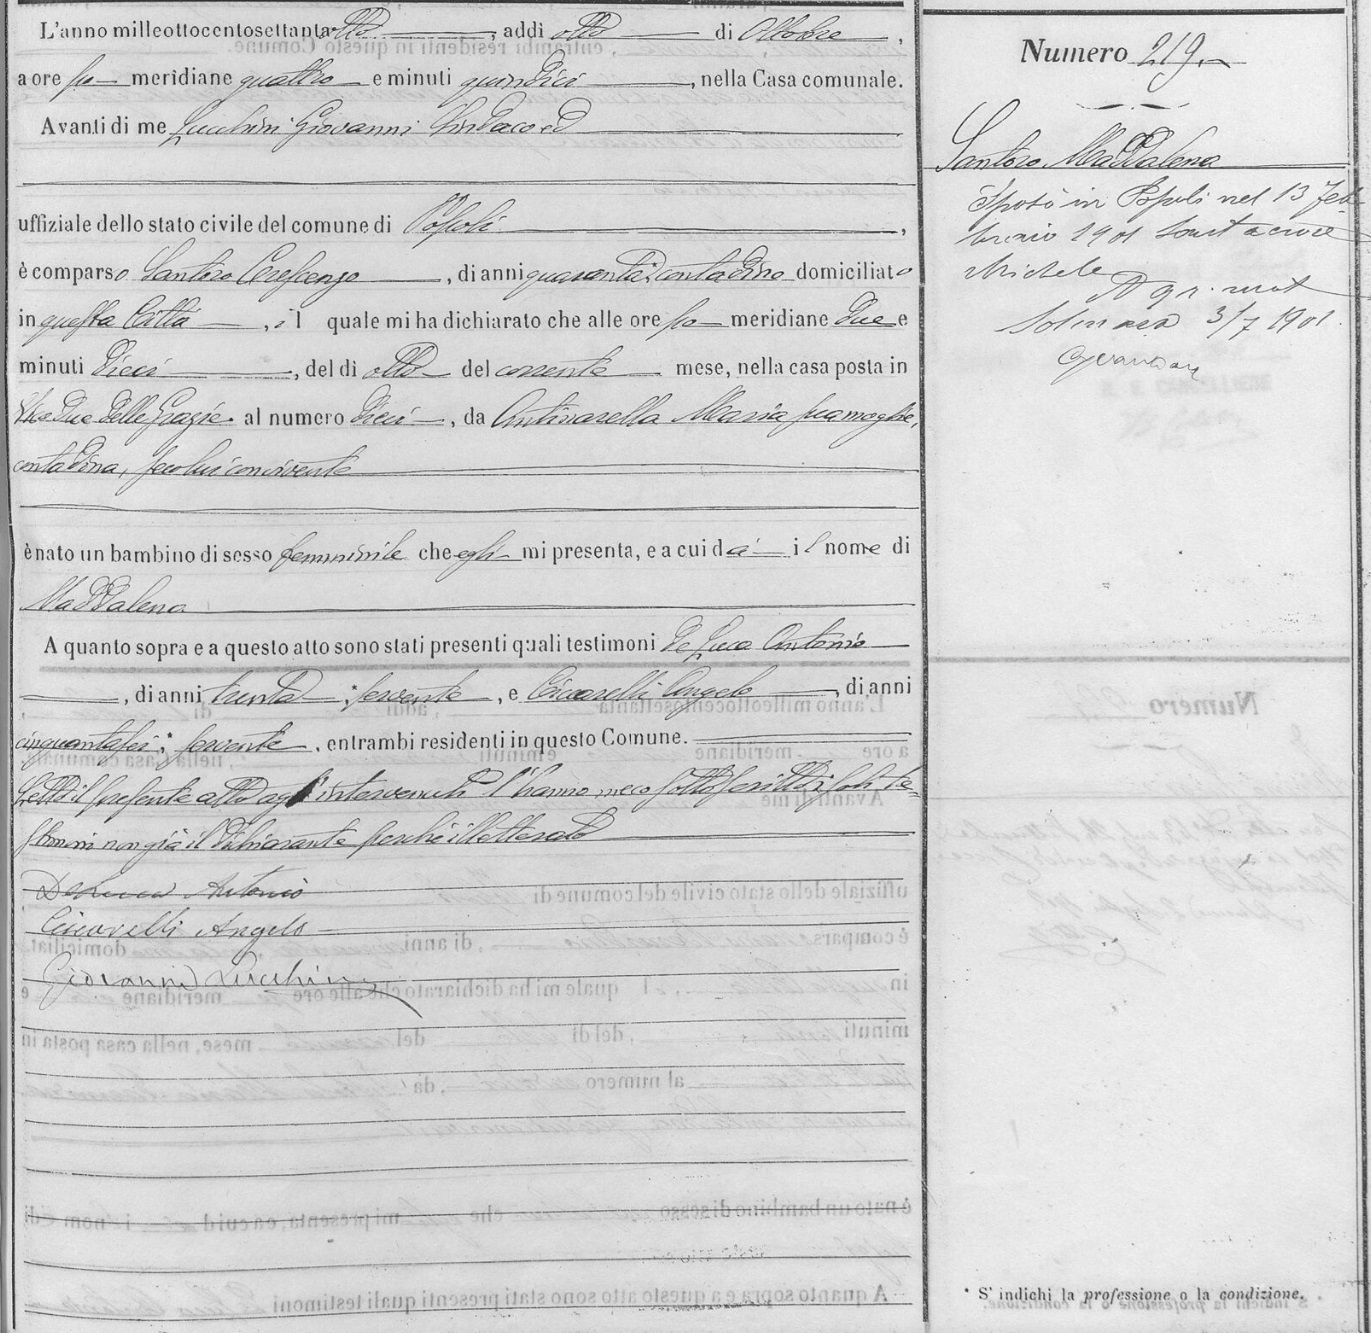 L'anno milleottocentosettantaotto, addì otto di Ottobre,
a ore po meridiane quattro e minuti quindici, nella Casa comunale.
Avanti di me Lucchini Giovanni Sindaco ed
uffiziale dello stato civile del comune di Popoli,
è comparso Santoro Crescenzo, di anni quaranta, contadino domiciliato
in questa Città, il quale mi ha dichiarato che alle ore po meridiane due e
minuti dieci, del dì otto del corrente mese, nella casa posta in
Via Due delle Grazie al numero dieci, da Antinarella Maria sua moglie,
contadina, seco lui convivente
è nato un bambino di sesso femminile che egli mi presenta, e a cui dà il nome di
Maddalena
A quanto sopra e a questo atto sono stati presenti quali testimoni de Luca Antonio
, di anni trenta, servente, e Ciccarelli Angelo, di anni
cinquantasei, servente, entrambi residenti in questo Comune.
Letto il presente atto agl'intervenuti l'hanno meco sottoscritto i soli te=
stimoni non già il dichiarante perchè illetterato
De Luca Antonio
Ciccarelli Angelo
Giovanni Lucchini
Numero 219.
Santoro Maddalena
Sposò in Popoli nel 13 Feb
braio 1901 Santacroce
Michele
Solmona 3/7 1901.
* S'indichi la professione o la condizione.